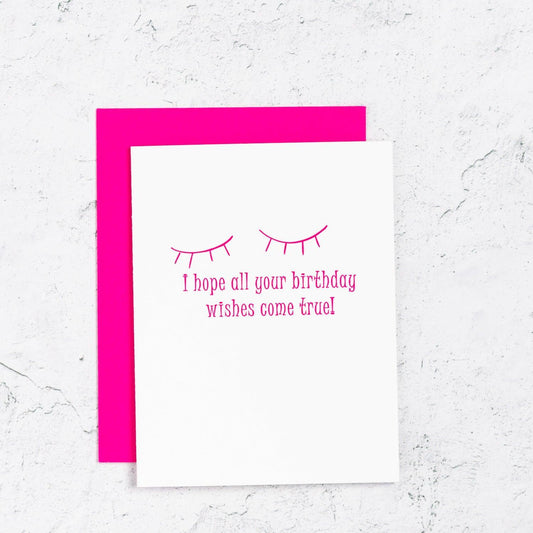 I hope all your birthday
wishes come true!